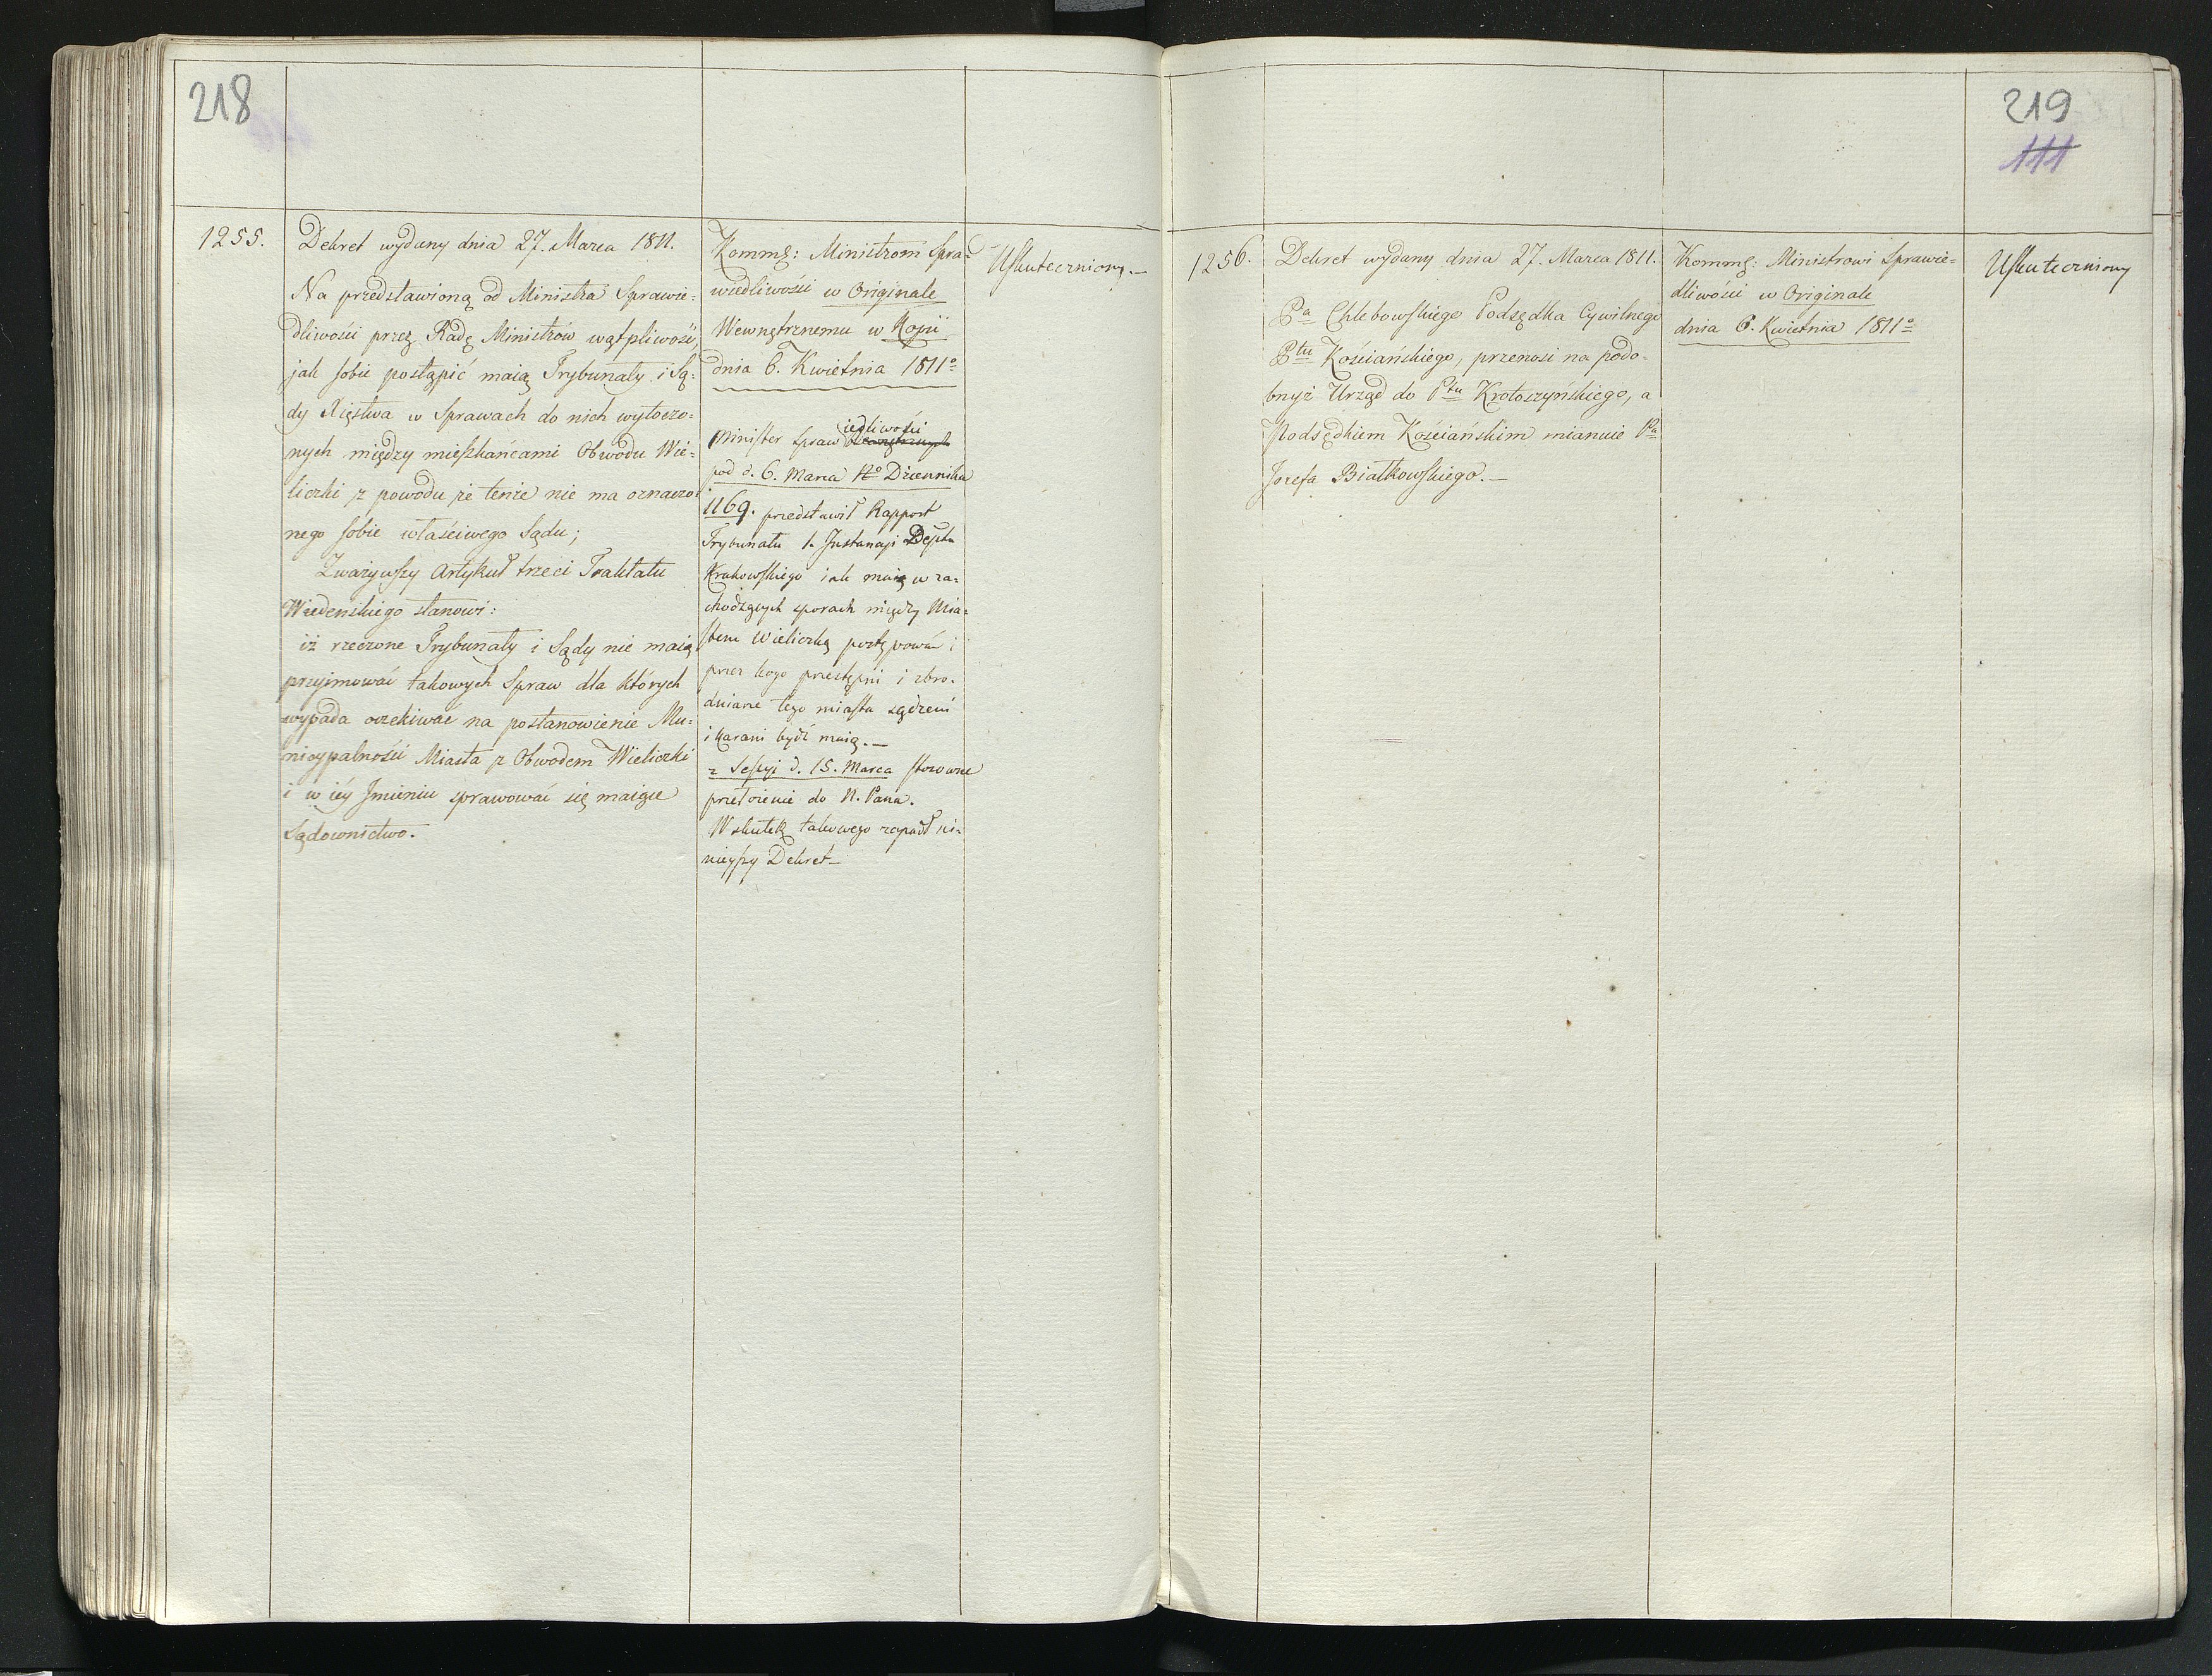 218
1255.
Dekret wydany dnia 27. Marca 1811.
Na przedstawioną od Ministra Sprawie-
dliwości przez Radę Ministrów wątpliwość,
jak sobie postąpić maią Trybunały i Są-
dy Xięstwa w Sprawach do nich wytoczo-
nych między mieszkańcami Obwodu Wie-
liczki z powodu że tenże nie ma oznaczo-
nego sobie właściwego Sądu;
Zważywszy Artykuł trzeci Traktatu
Wiedeńskiego stanowi:
iż rzeczone Trybunały i Sądy nie maią
przyimować takowych Spraw dla których
wypada oczekiwać na postanowienie Mu-
nicypalności Miasta z Obwodem Wieliczki
i w iéy Jmieniu sprawować się maiące
Sądownictwo.
Kommg: Ministrom Spra-
wiedliwości w Originale
Wewnętrznemu w Kopii
dnia 6. Kwietnia 1811o
iedliwości
Minister Spraw Zewnętrznych
pod d. 6. Marca No Dziennika
1169. przedstawił Rapport
Trybunału 1. Instancyi Depta
Krakowskiego iak maią w za-
chodzących sporach między Mia-
stem Wieliczką postępować i
przez kogo przestępni i zbro-
dniarze tego miasta sądzeni
i karani bydź maią.—
z Sessyi d. 15. Marca stosowne
przełożenie do N. Pana.
W skutek takowego zapadł ni-
nieyszy Dekret—
Uskuteczniony.—
219
111
1256.
Dekret wydany dnia 27. Marca 1811.
Pa Chlebowskiego Podsędka Cywilnego
Ptu Kościańskiego, przenosi na podo-
bnyż Urząd do Ptu Krotoszyńskiego, a
Podsędkiem Kościańskim mianuie Pa
Jozefa Białkowskiego.—
Kommg: Ministrowi Sprawie-
dliwości w Originale
dnia 6. Kwietnia 1811o
Uskuteczniony